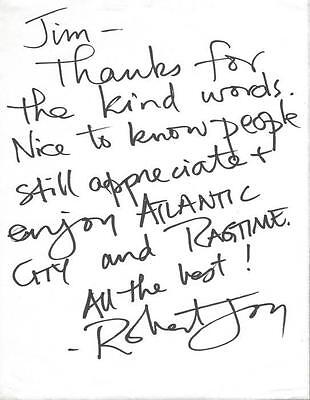 Jim-
Thanks for
the kind words.
Nice to know people
still appreciate +
enjoy ATLANTIC
CITY and RAGTIME.
All the best!
-Robert Joy